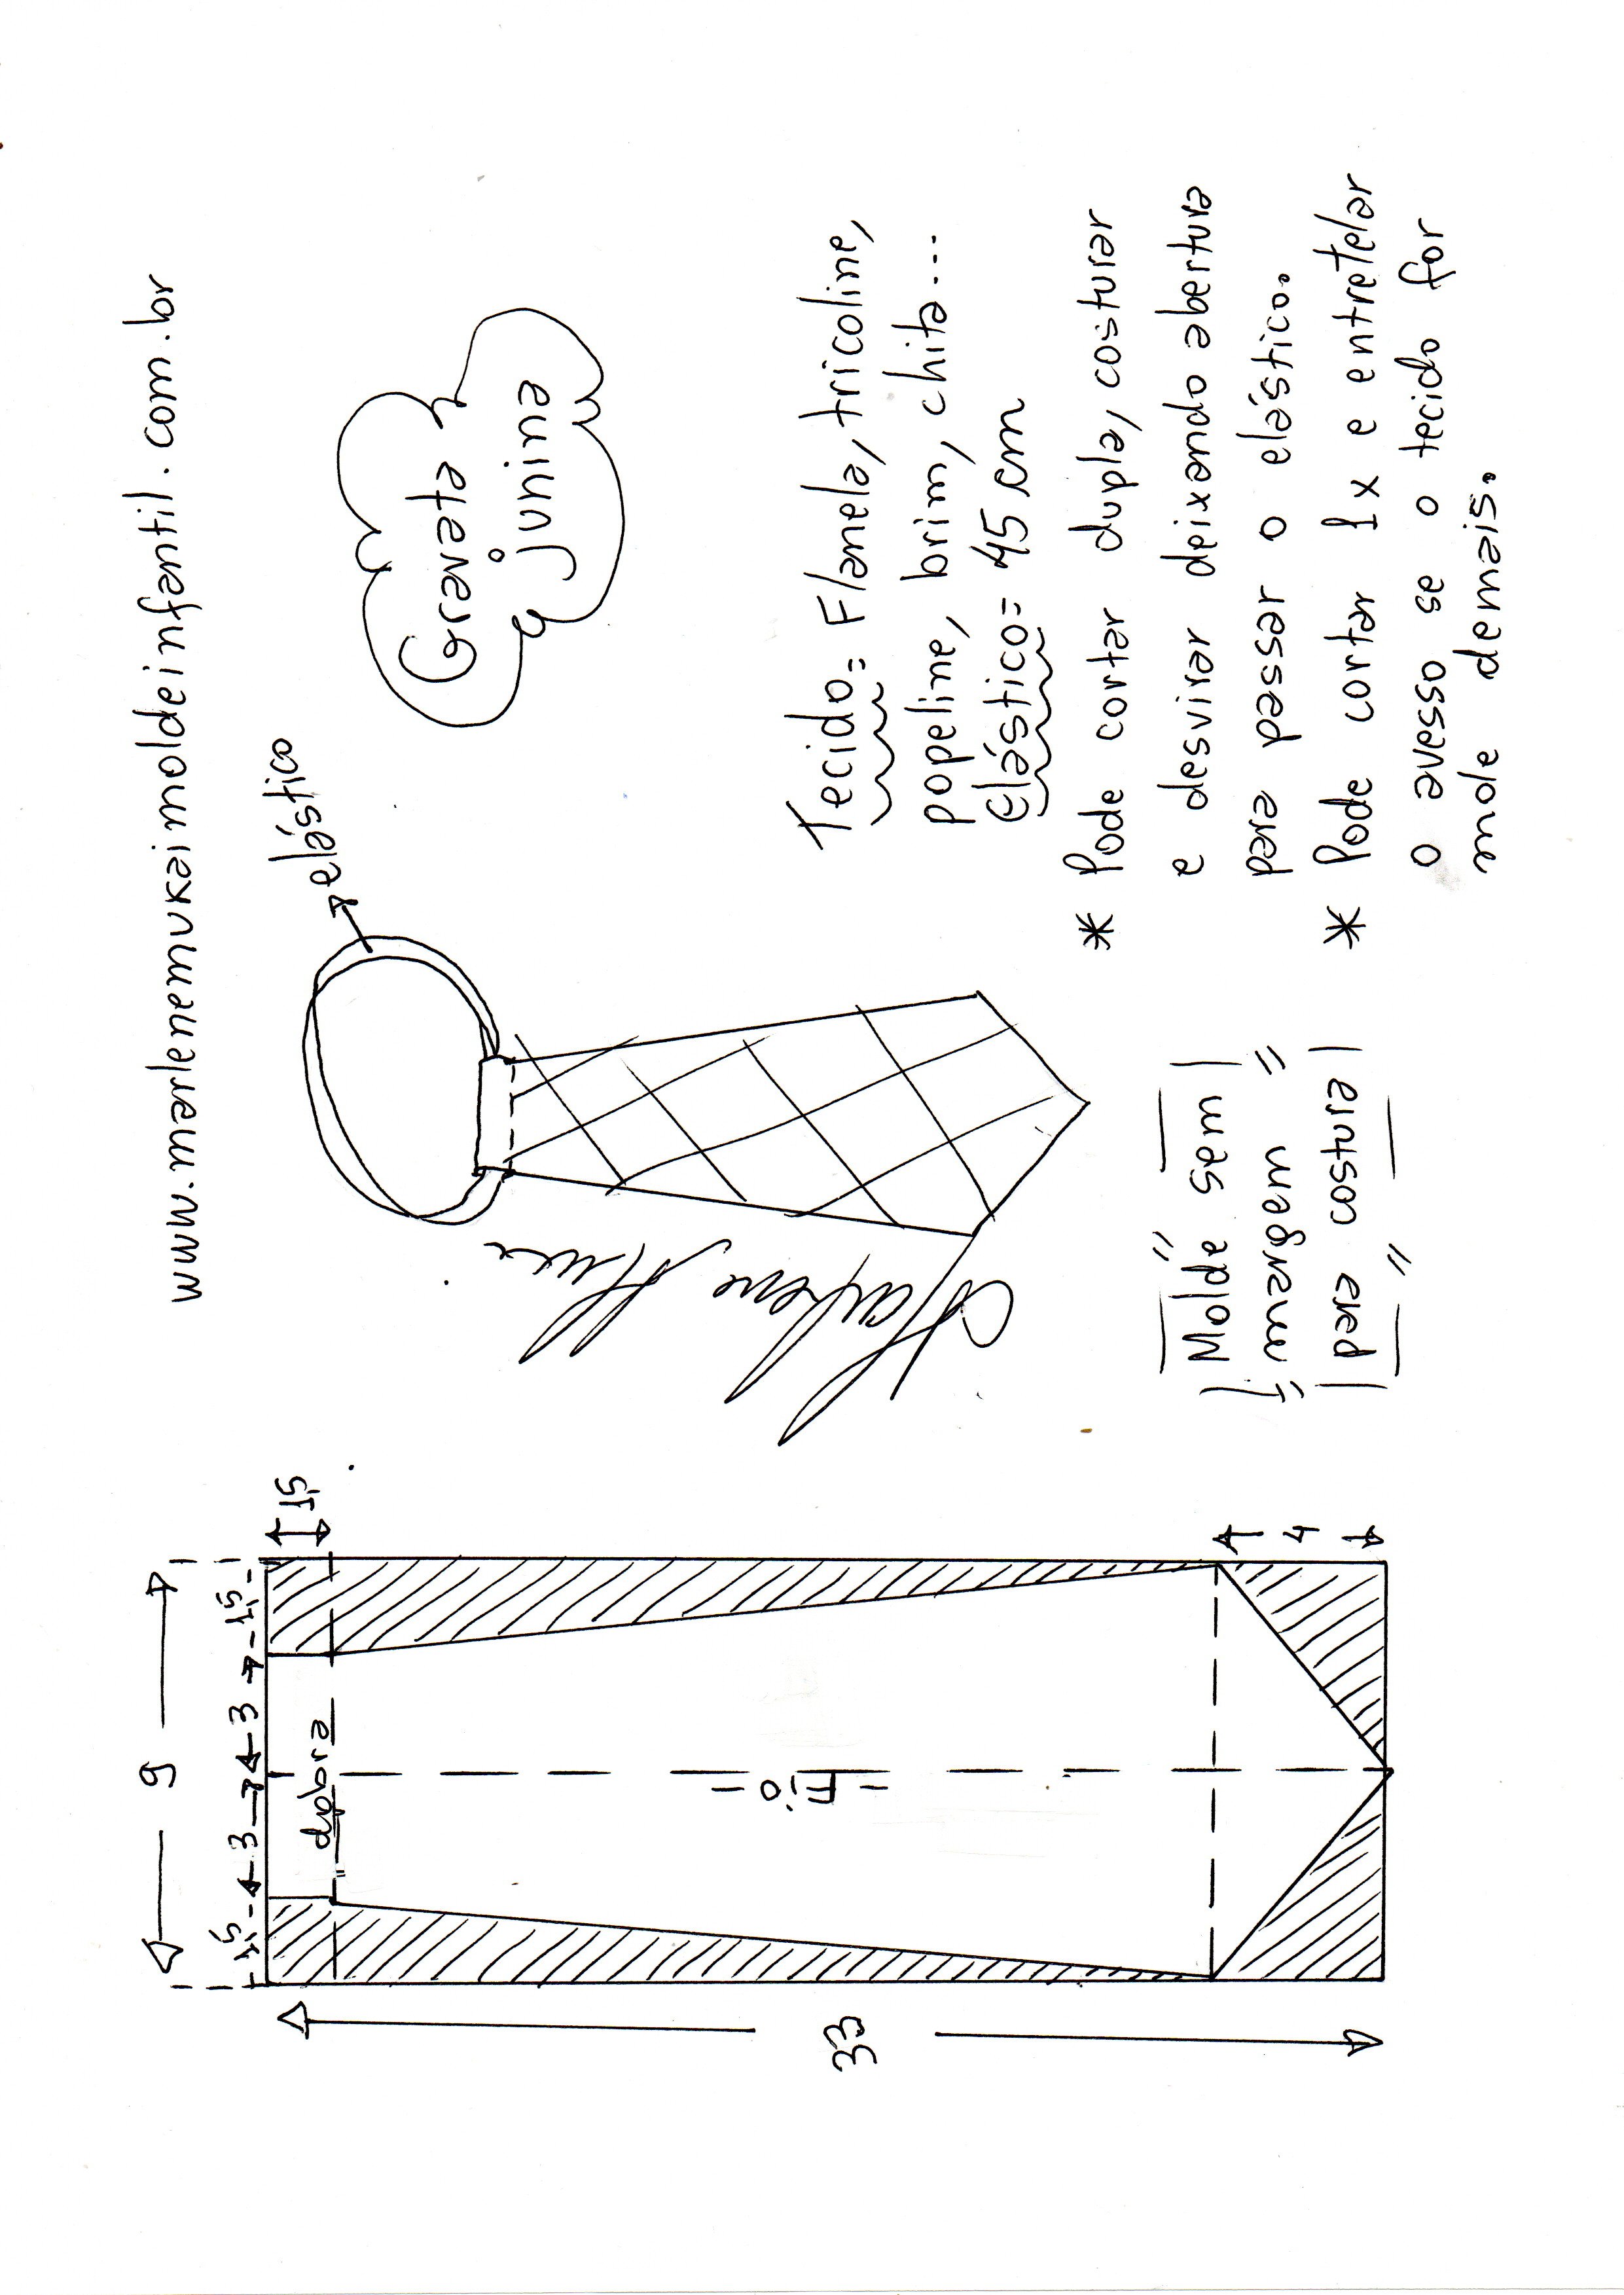 www.marlenemukaimoldeinfantil.com.br
9
1,5 3 3 1,5
1,5
dobra
= Fio =
33
4
elástico
Gravata
junina
Marlene Mukai
Tecido: Flanela, tricoline,
popeline, brim, chita...
Elástico= 45 cm
* Pode cortar dupla, costurar
e desvirar deixando abertura
para passar o elástico.
* Pode cortar 1x e entretelar
o avesso se o tecido for
mole demais.
Molde sem
margem
para costura